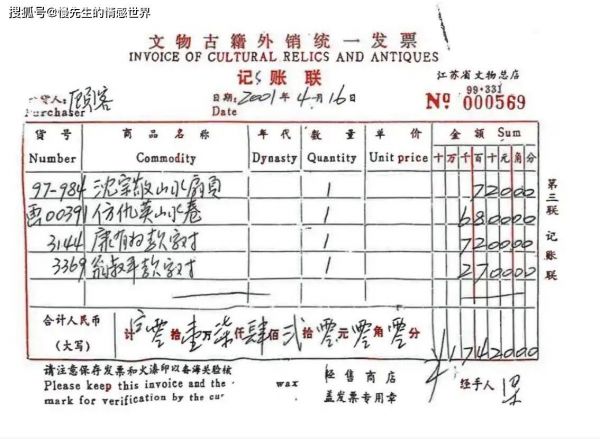 搜狐号@慢先生的情感世界
文物古籍外销统一发票
INVOICE OF CULTURAL RELICS AND ANTIQUES
记账联
江苏省文物总店
99·331
货人:顾客
Purchaser
日期:2001年4月16日
Date
№ 000569
货号 商品名称 年代 数量 单价 金额 Sum
Number Commodity Dynasty Quantity Unit price 十万千百十元角分
97-984 沈宗敬山水扇页 1 72000
云00391 仿仇英山水卷 1 680000
3144 康有为款字对 1 720000
3369 翁叔平款字对 1 270000
第三联 记账联
合计人民币 计 零拾壹万柒仟肆佰贰拾零元零角零分 ¥1742000
(大写)
请注意保存发票和火漆印以备海关验核
Please keep this invoice and the wax
mark for verification by the cu
经售商店
盖发票专用章
经手人